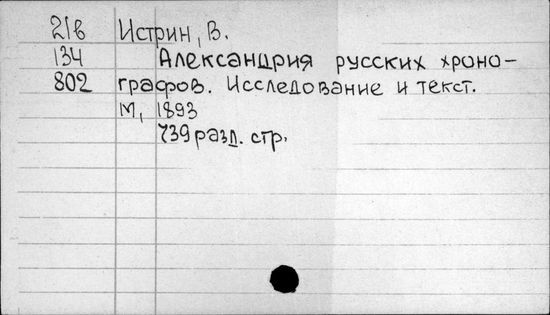 21б Истрин, В.
134 Александрия русских хроно-
802 графов. Исследование и текст.
М, 1893
739 разд. стр.